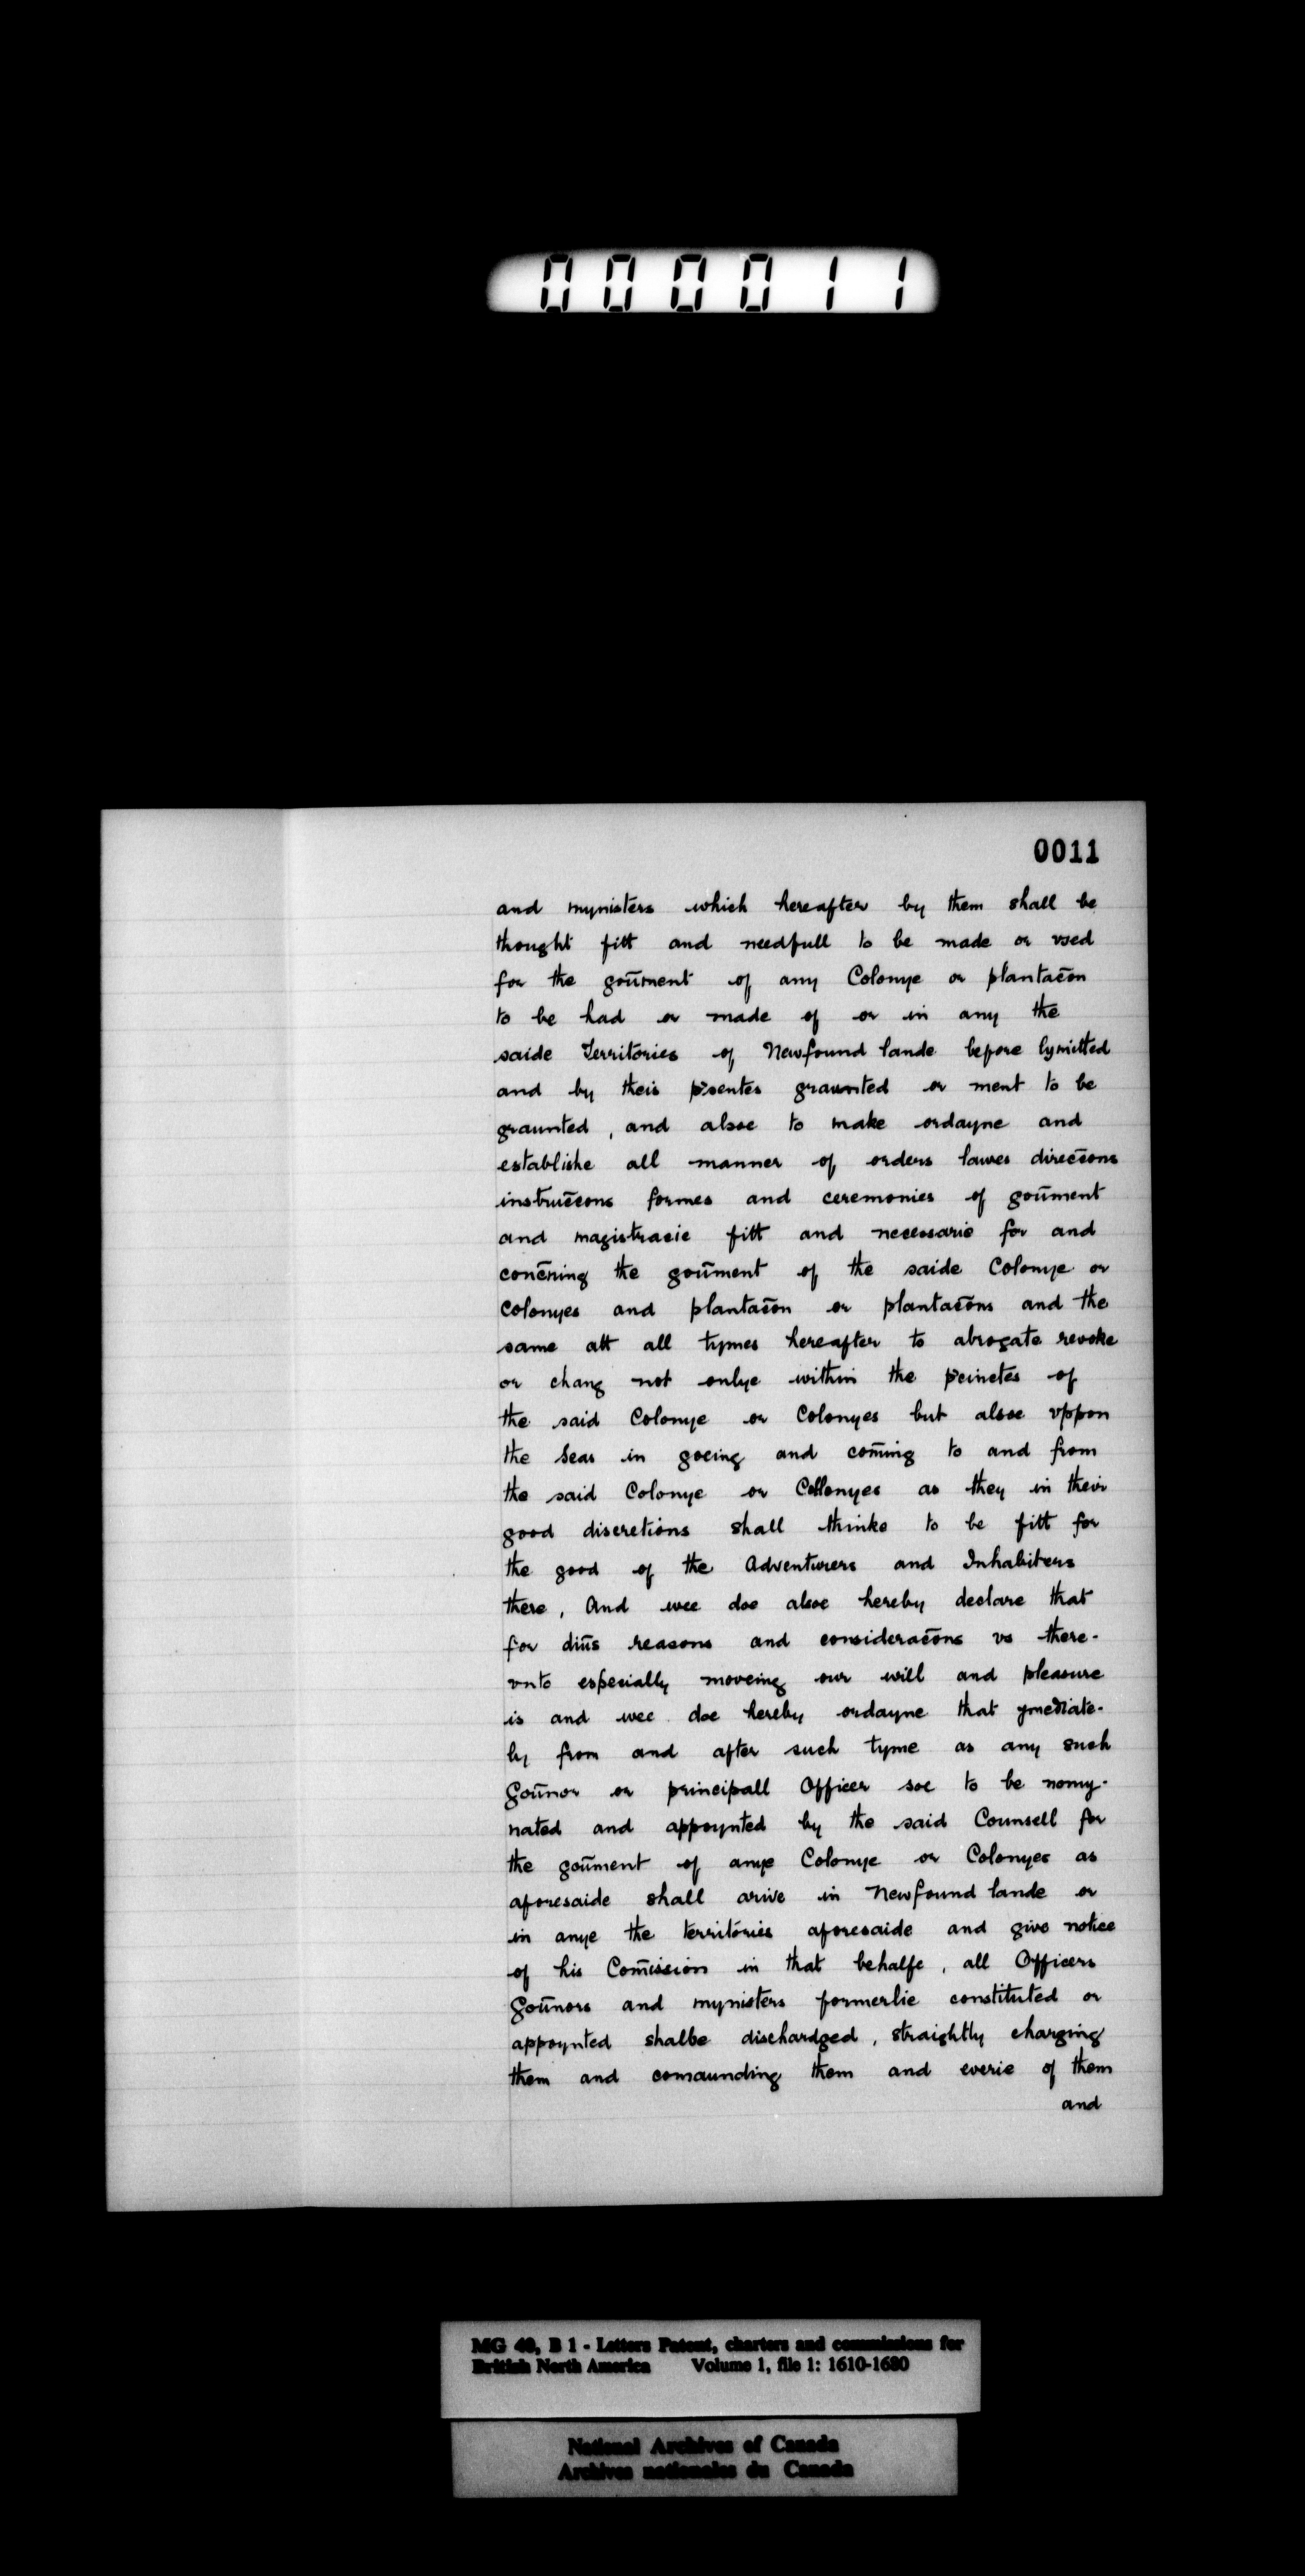 000011
0011
and mynisters which hereafter by them shall be
thought fitt and needfull to be made or vsed
for the goūment of any Colonye or plantacōn
to be had or made of or in any the
saide Territories of Newfound lande before lymitted
and by theis p̄sentes graunted or ment to be
graunted, and alsoe to make ordayne and
establishe all manner of orders lawes direccōns
instruccōns formes and ceremonies of goūment
and magistracie fitt and necessarie for and
concn̄ing the goūment of the saide Colonye or
Colonyes and plantacōn or plantacōns and the
same att all tymes hereafter to abrogate revoke
or chang not onlye within the p̄cinctes of
the said Colonye or Colonyes but alsoe vppon
the Seas in goeing and com̄ing to and from
the said Colonye or Collonyes as they in their
good discretions shall thinke to be fitt for
the good of the Adventurers and Inhabiters
there, And wee doe alsoe hereby declare that
for diūs reasons and consideracōns vs there-
vnto especially moveing our will and pleasure
is and wee doe hereby ordayne that ymediate-
ly from and after such tyme as any such
Goūnor or principall Officer soe to be nomy-
nated and appoynted by the said Counsell for
the goūment of anye Colonye or Colonyes as
aforesaide shall arive in Newfound lande or
in anye the territories aforesaide and give notice
of his Com̄ission in that behalfe, all Officers
Goūnors and mynisters formerlie constituted or
appoynted shalbe dischardged, straightly charging
them and comaunding them and everie of them
and
MG 40, B 1 - Letters Patent, charters and commissions for
British North America Volume 1, file 1: 1610-1680
National Archives of Canada
Archives nationales du Canada